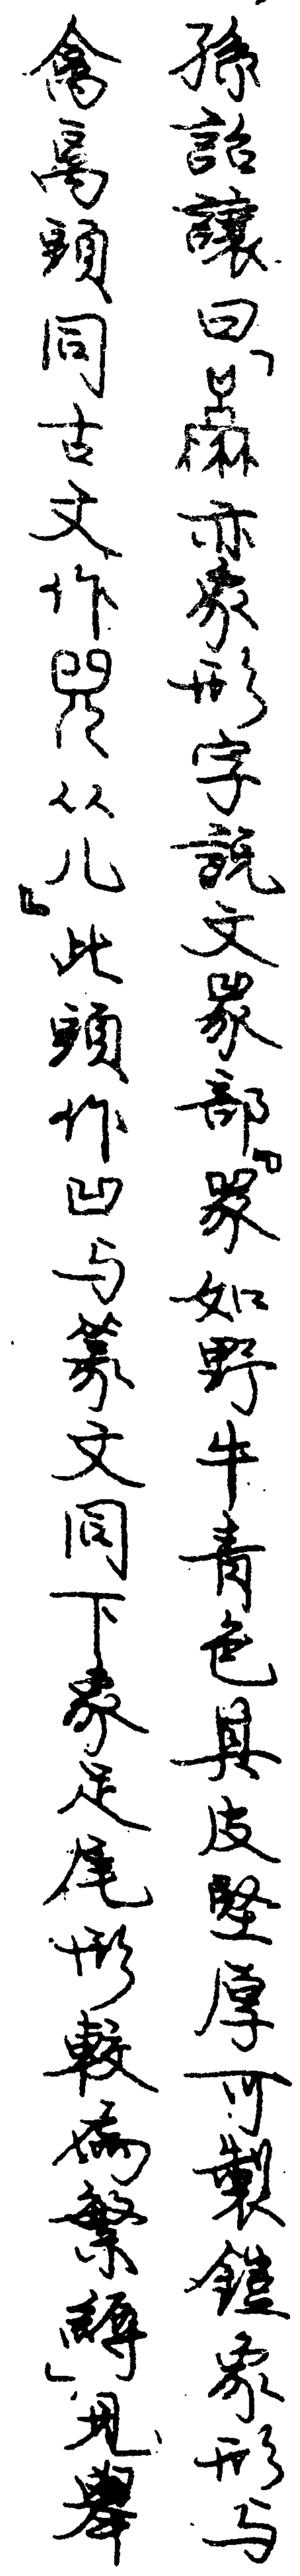 孫詒讓曰「亦象形字說文𤉡部『𤉡如野牛青色其皮堅厚可製鎧象形与
禽离頭同古文作𠒅从儿』此頭作凹与篆文同下象足尾形較為繁縟」見舉